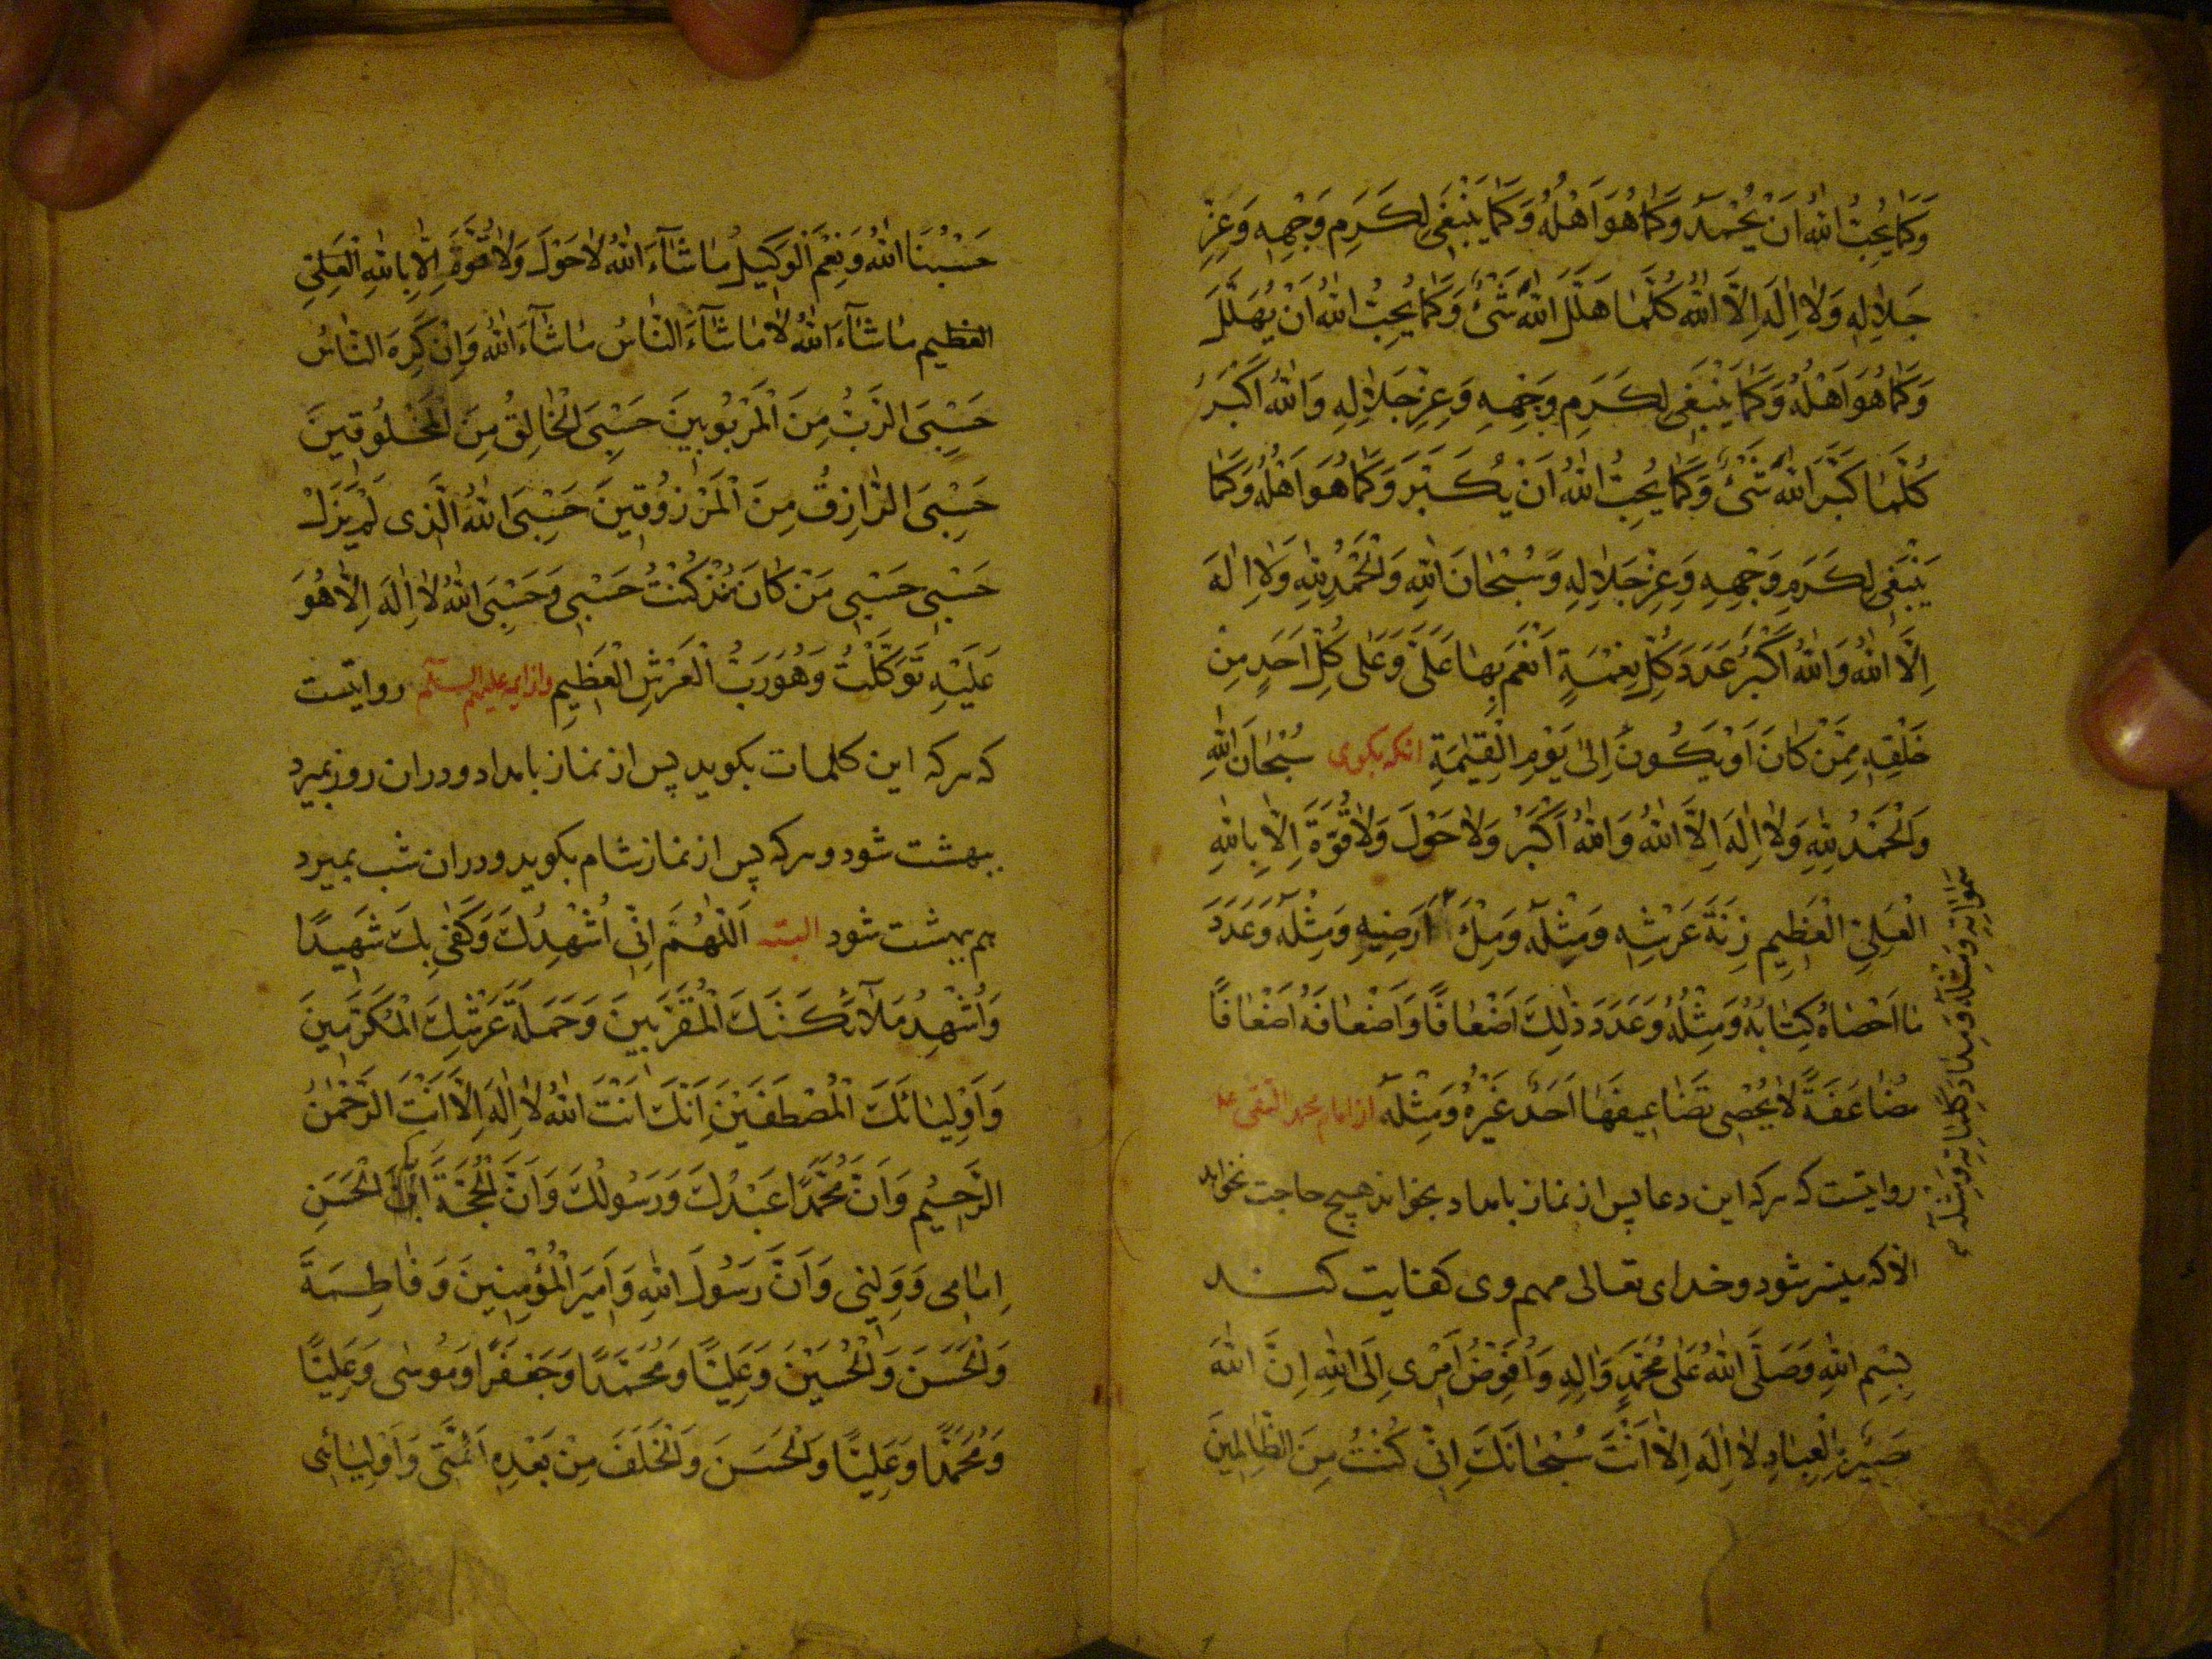 وَكَمٰا يُحِبُّ اللّٰهُ اَنْ يُحْمَدَ وَكَمٰا هُوَ اَهْلُهُ وَكَمٰا يَنْبَغى لِكَرَمِ وَجْهِهِ وَعِزِّ
جَلاٰلِهِ وَلاٰ اِلٰهَ اِلَّا اللّٰهُ كُلَّمٰا هَلَّلَ اللّٰهَ شَىْءٌ وَكَمٰا يُحِبُّ اللّٰهُ اَنْ يُهَلَّلَ
وَكَمٰا هُوَ اَهْلُهُ وَكَمٰا يَنْبَغى لِكَرَمِ وَجْهِهِ وَعِزِّ جَلاٰلِهِ وَاللّٰهُ اَكْبَرُ
كُلَّمٰا كَبَّرَ اللّٰهَ شَىْءٌ وَكَمٰا يُحِبُّ اللّٰهُ اَنْ يُكَبَّرَ وَكَمٰا هُوَ اَهْلُهُ وَكَمٰا
يَنْبَغى لِكَرَمِ وَجْهِهِ وَعِزِّ جَلاٰلِهِ وَسُبْحٰانَ اللّٰهِ وَالْحَمْدُ لِلّٰهِ وَلاٰ اِلٰهَ
اِلَّا اللّٰهُ وَاللّٰهُ اَكْبَرُ عَدَدَ كُلِّ نِعْمَةٍ اَنْعَمَ بِهٰا عَلَىَّ وَعَلٰى كُلِّ اَحَدٍ مِنْ
خَلْقِهِ مِمَّنْ كٰانَ اَوْ يَكُونُ اِلىٰ يَوْمِ الْقِيٰمَةِ انكه بكوى سُبْحٰانَ اللّٰهِ
وَالْحَمْدُ لِلّٰهِ وَلاٰ اِلٰهَ اِلَّا اللّٰهُ وَاللّٰهُ اَكْبَرُ وَلاٰ حَوْلَ وَلاٰ قُوَّةَ اِلّاٰ بِاللّٰهِ
الْعَلِىِّ الْعَظِيمِ زِنَةَ عَرْشِهِ وَمِثْلَهُ وَمِلْءَ اَرَضيهِ وَمِثْلَهُ وَعَدَدَ
مٰا اَحْصٰاهُ كِتٰابُهُ وَمِثْلَهُ وَعَدَدَ ذٰلِكَ اَضْعٰافًا وَاَضْعٰافَهُ اَضْعٰافًا
مُضٰاعَفَةً لاٰ يُحْصى تَضٰاعيفَهٰا اَحَدٌ غَيْرُهُ وَمِثْلَهُ از امام محمد التقى عليه
روايتست كه هركه اين دعا پس از نماز بامداد بخواند هيچ حاجت نخواهد
الا كه ميسر شود و خداى تعالى مهم وى كفايت كند
بِسْمِ اللّٰهِ وَصَلَّى اللّٰهُ عَلٰى مُحَمَّدٍ وَاٰلِهِ وَاُفَوِّضُ اَمْرى اِلَى اللّٰهِ اِنَّ اللّٰهَ
بَصيرٌ بِالْعِبٰادِ لاٰ اِلٰهَ اِلّاٰ اَنْتَ سُبْحٰانَكَ اِنّى كُنْتُ مِنَ الظّٰالِمينَ
سَمٰوٰاتِهِ وَمِثْلَهُ وَمِدٰادَ كَلِمٰاتِهِ وَمِثْلَهُ
حَسْبُنَا اللّٰهُ وَنِعْمَ الْوَكيلُ مٰا شٰاۤءَ اللّٰهُ لاٰ حَوْلَ وَلاٰ قُوَّةَ اِلّاٰ بِاللّٰهِ الْعَلِىِّ
الْعَظيمِ مٰا شٰاۤءَ اللّٰهُ لاٰ مٰا شٰاۤءَ النّٰاسُ مٰا شٰاۤءَ اللّٰهُ وَاِنْ كَرِهَ النّٰاسُ
حَسْبِىَ الرَّبُّ مِنَ الْمَرْبُوبينَ حَسْبِىَ الْخٰالِقُ مِنَ الْمَخْلُوقينَ
حَسْبِىَ الرّٰازِقُ مِنَ الْمَرْزُوقينَ حَسْبِىَ اللّٰهُ الَّذى لَمْ يَزَلْ
حَسْبى حَسْبى مَنْ كٰانَ مُنْذُ كُنْتُ حَسْبى وَحَسْبِىَ اللّٰهُ لاٰ اِلٰهَ اِلّاٰ هُوَ
عَلَيْهِ تَوَكَّلْتُ وَهُوَ رَبُّ الْعَرْشِ الْعَظيمِ و از ايمه عليهم السلم روايتست
كه هركه اين كلمات بكويد پس از نماز بامداد و دران روز بميرد
ببهشت شود و هركه پس از نماز شام بكويد و دران شب بميرد
هم ببهشت شود البته اَللّٰهُمَّ اِنّى اُشْهِدُكَ وَكَفىٰ بِكَ شَهيدًا
وَاُشْهِدُ مَلاٰۤئِكَتَكَ الْمُقَرَّبينَ وَحَمَلَةَ عَرْشِكَ الْمُكَرَّمينَ
وَاَوْلِيٰائَكَ الْمُصْطَفَيْنَ اَنَّكَ اَنْتَ اللّٰهُ لاٰ اِلٰهَ اِلّاٰ اَنْتَ الرَّحْمٰنُ
الرَّحيمُ وَاَنَّ مُحَمَّدًا عَبْدُكَ وَرَسُولُكَ وَاَنَّ الْحُجَّةَ ابْنَ الْحَسَنِ
اِمٰامى وَوَلِيّى وَاَنَّ رَسُولَ اللّٰهِ وَاَميرَ الْمُؤْمِنينَ وَفٰاطِمَةَ
وَالْحَسَنَ وَالْحُسَيْنَ وَعَلِيًّا وَمُحَمَّدًا وَجَعْفَرًا وَمُوسٰى وَعَلِيًّا
وَمُحَمَّدًا وَعَلِيًّا وَالْحَسَنَ وَالْخَلَفَ مِنْ بَعْدِهِ اَئِمَّتى وَاَوْلِيٰائى